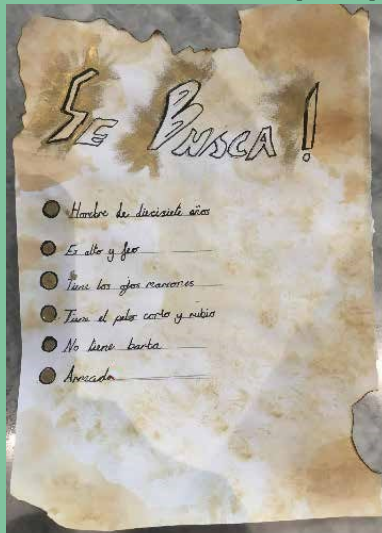 Se Busca!
Hombre de diecisiete años
Es alto y feo
Tiene los ojos marrones
Tiene el pelo corto y rubio
No tiene barba
Armado